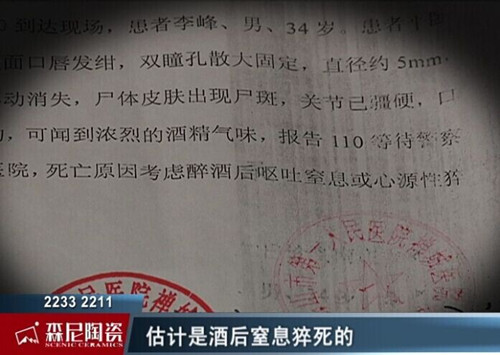 到达现场，患者李峰、男、34岁。患者
面口唇发绀，双瞳孔散大固定，直径约5mm.
动消失，尸体皮肤出现尸斑，关节已疆硬，口
，可闻到浓烈的酒精气味，报告110等待警察
医院，死亡原因考虑醉酒后呕吐窒息或心源性猝
人民医院禅
民医院禅
2233 2211
森尼陶瓷
SCENIC CERAMICS
估计是酒后窒息猝死的